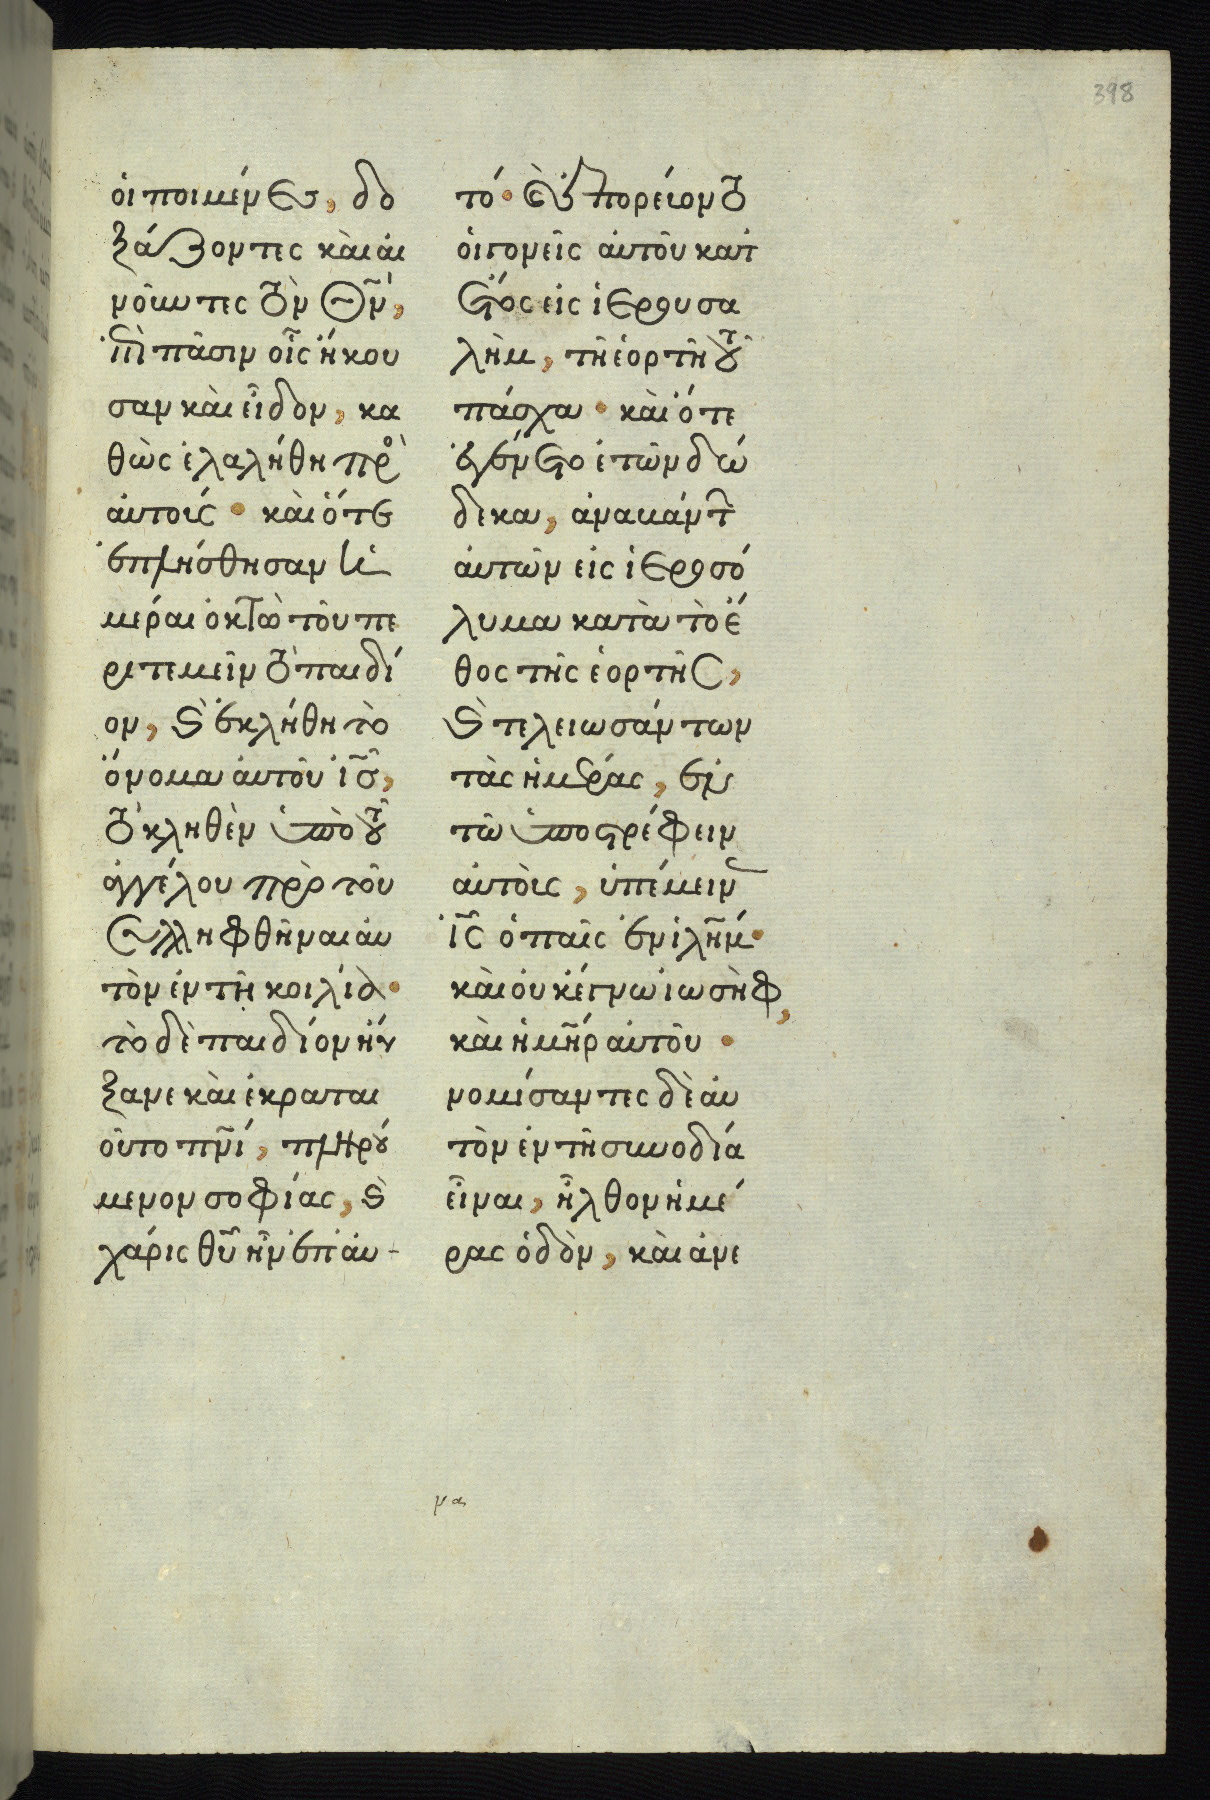 398
οἱ ποιμένες, δο
ξάζοντες καὶ αἰ
νοῦντες τὸν θν̄,
ἐπὶ πᾶσιν οἷς ἤκου
σαν καὶ εἶδον, κα
θὼς ἐλαλήθη πρὸ
αὐτούς · καὶ ὅτε
ἐπλήσθησαν αἱ ἡ
μέραι ὀκτὼ τοῦ πε
ριτεμεῖν τὸ παιδί
ον, καὶ ἐκλήθη τὸ
ὄνομα αὐτοῦ ἰς̄,
τὸ κληθὲν ὑπὸ τοῦ
ἀγγέλου πρὸ τοῦ
συλληφθῆναι αὐ
τὸν ἐν τῇ κοιλίᾳ ·
τὸ δὲ παιδίον ηὔ
ξανε καὶ ἐκραται
οῦτο πν̄ί, πληρού
μενον σοφίας, καὶ
χάρις θῡ ἦν ἐπ' αὐ-
τό · καὶ ἐπορεύοντο
οἱ γονεῖς αὐτοῦ κατ
ἔτος εἰς ἱερουσα
λὴμ, τῇ ἑορτῇ τοῦ
πάσχα · καὶ ὅτε
ἐγένετο ἐτῶν δώ
δεκα, ἀναβάντ
αὐτῶν εἰς ἱεροσό
λυμα κατὰ τὸ ἔ
θος τῆς ἑορτῆς,
καὶ τελειωσάντων
τὰς ἡμέρας, ἐν
τῷ ὑποστρέφειν
αὐτοὺς, ὑπέμειν
ἰς̄ ὁ παῖς ἐν ἱλη̄μ ·
καὶ οὐκ ἔγνω ἰωσὴφ,
καὶ ἡ μη̄ρ αὐτοῦ ·
νομίσαντες δὲ αὐ
τὸν ἐν τῇ συνοδίᾳ
εἶναι, ἦλθον ἡμέ
ρας ὁδὸν, καὶ ἀνε
μα